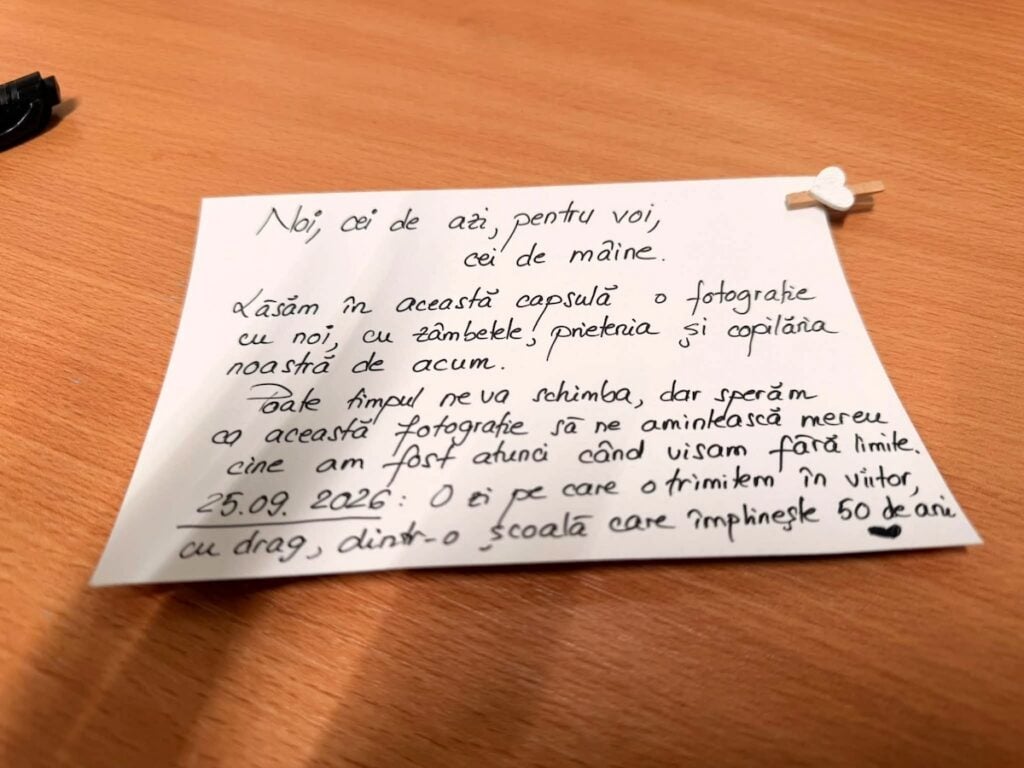 Noi, cei de azi, pentru voi,
cei de mâine.
Lăsăm în această capsulă o fotografie
cu noi, cu zâmbetele, prietenia și copilăria
noastră de acum.
Poate timpul ne va schimba, dar sperăm
ca această fotografie să ne amintească mereu
cine am fost atunci când visam fără limite.
25.09.2026: O zi pe care o trimitem în viitor,
cu drag, dintr-o școală care împlinește 50 de ani